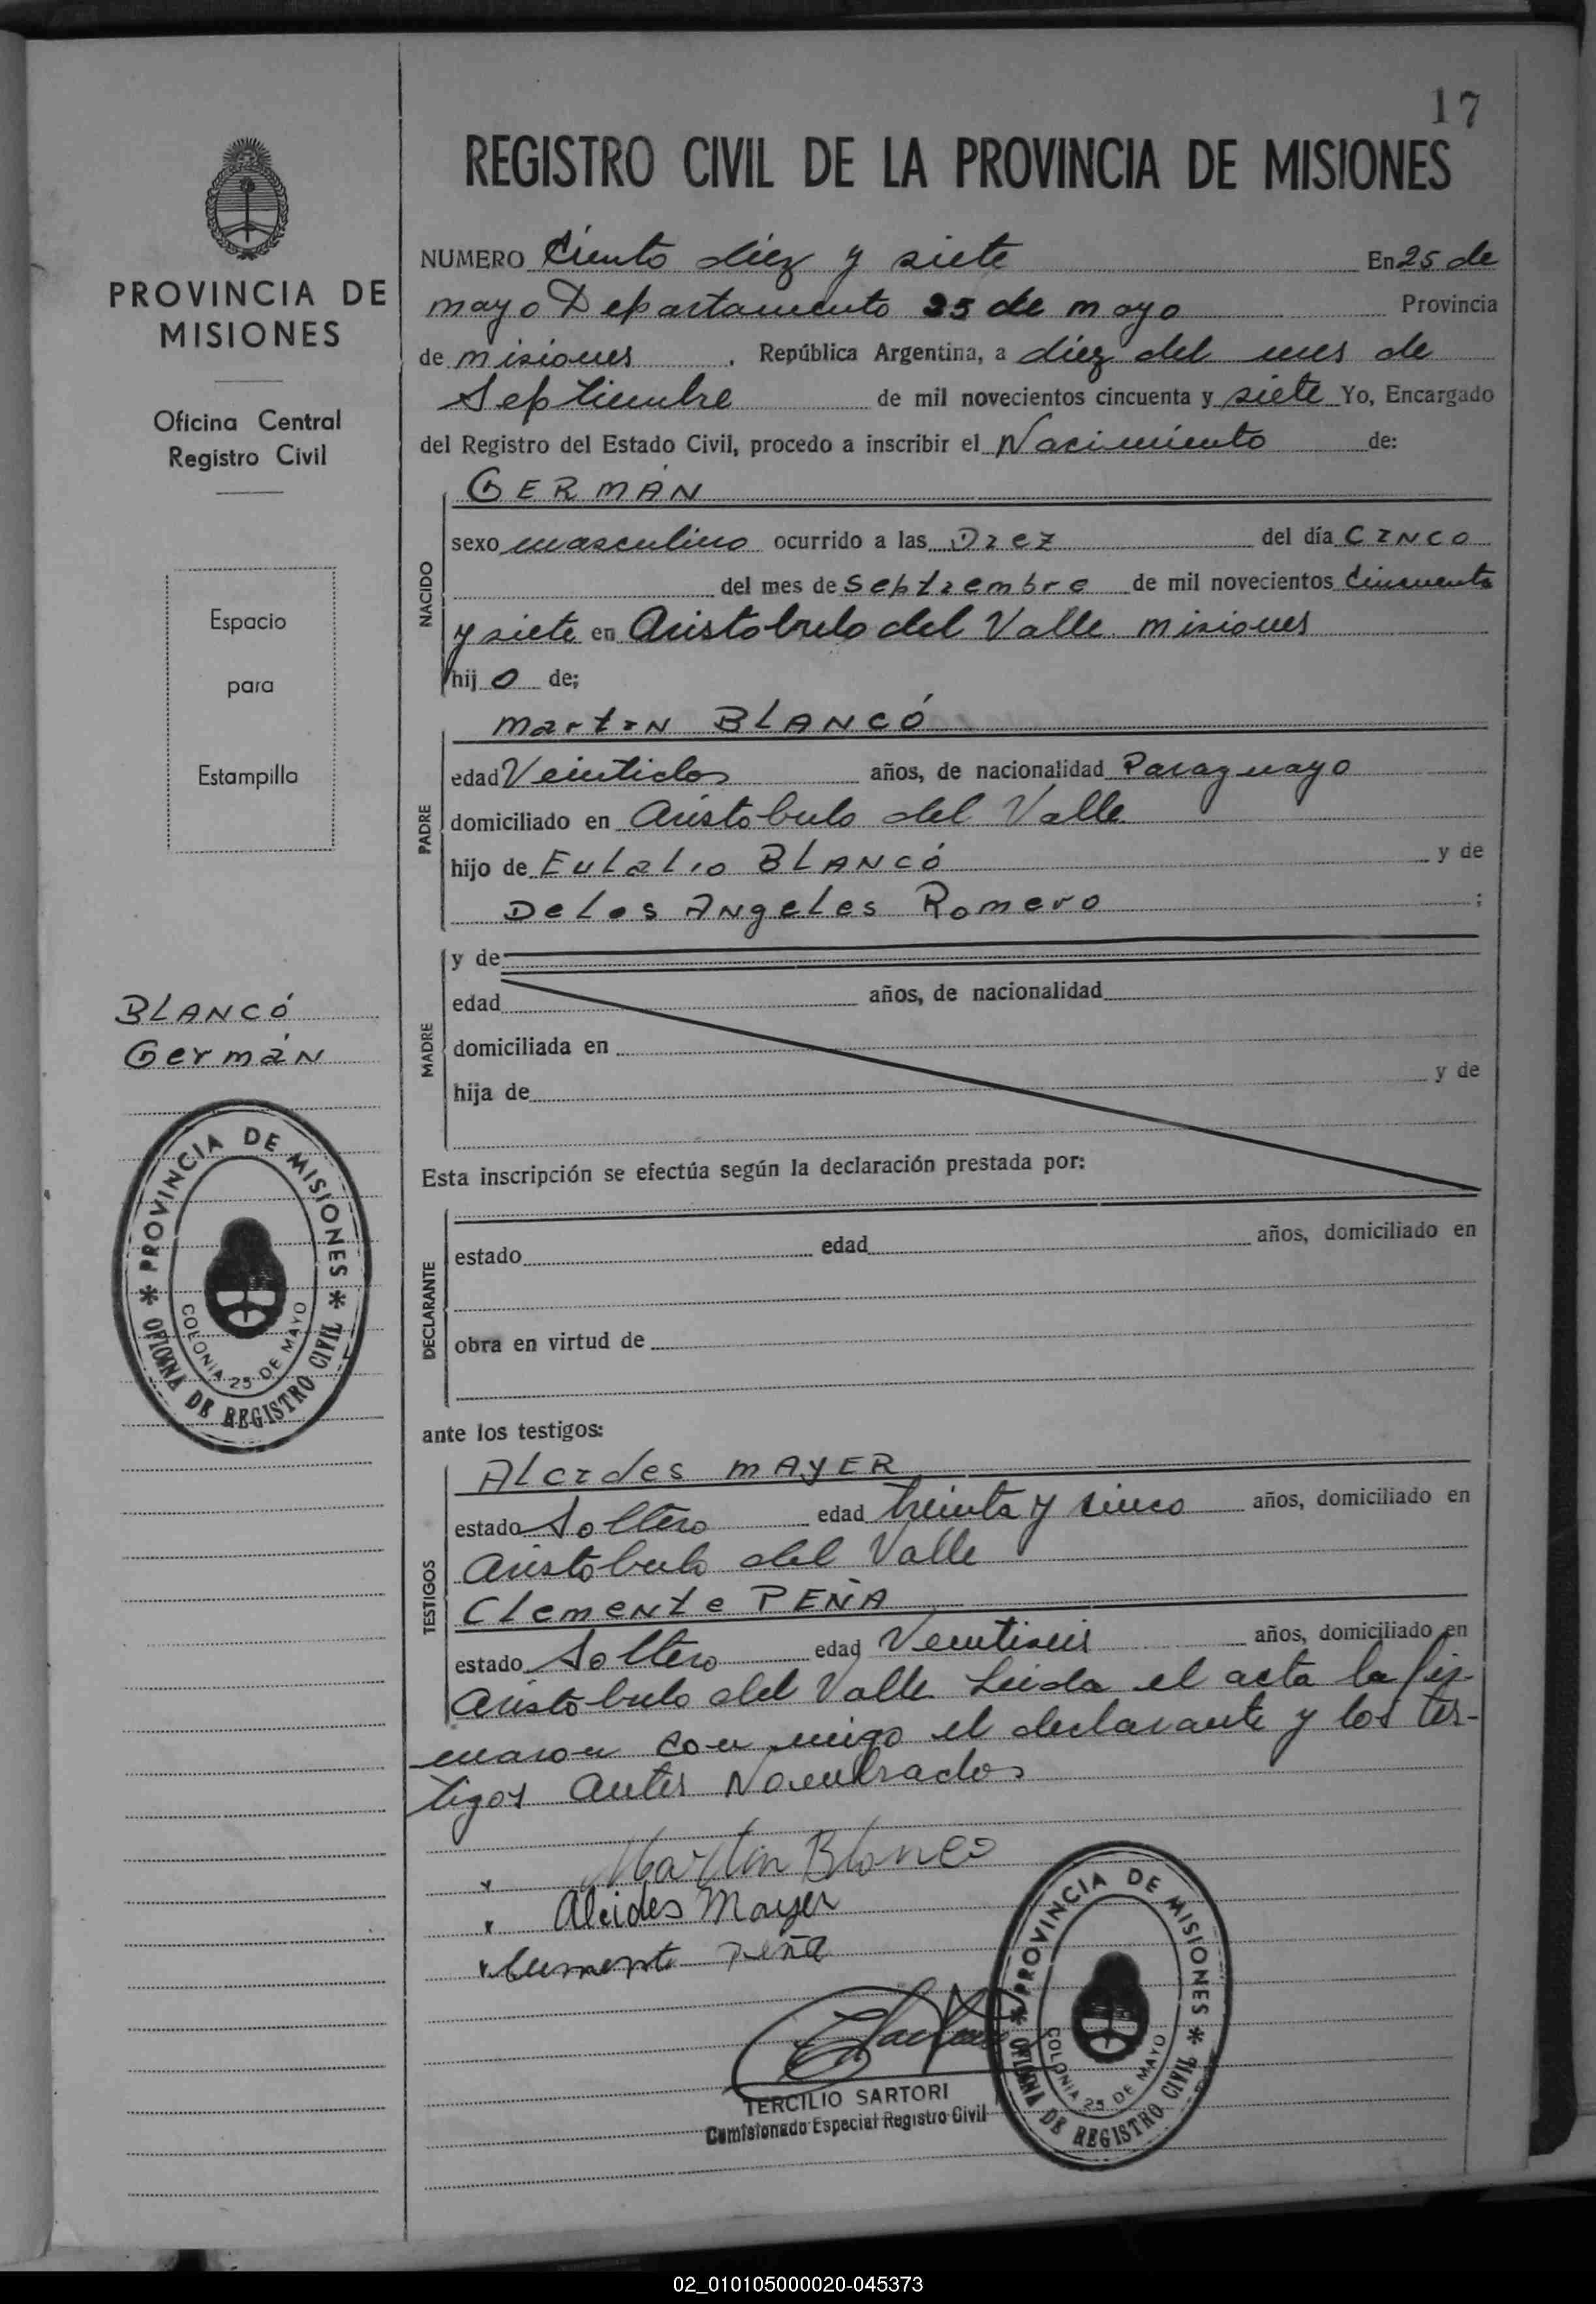 17
REGISTRO CIVIL DE LA PROVINCIA DE MISIONES
PROVINCIA DE
MISIONES
Oficina Central
Registro Civil
Espacio
para
Estampilla
BLANCÓ
Germán
PROVINCIA DE MISIONES
OFICINA DE REGISTRO CIVIL
COLONIA 25 DE MAYO
NUMERO Ciento diez y siete En 25 de
mayo Departamento 25 de mayo Provincia
de misiones . República Argentina, a diez del mes de
Septiembre de mil novecientos cincuenta y siete Yo, Encargado
del Registro del Estado Civil, procedo a inscribir el Nacimiento de:
NACIDO
GERMÁN
sexo masculino ocurrido a las Diez del día CINCO
del mes de Septiembre de mil novecientos cincuenta
y siete en Aristobulo del Valle misiones
hij o de;
PADRE
Martin BLANCÓ
edad Veintidos años, de nacionalidad Paraguayo
domiciliado en Aristobulo del Valle
hijo de Eulalio BLANCÓ y de
De los Angeles Romero ;
MADRE
y de
edad años, de nacionalidad
domiciliada en
hija de y de
Esta inscripción se efectúa según la declaración prestada por:
DECLARANTE
estado edad años, domiciliado en
obra en virtud de
ante los testigos:
TESTIGOS
Alcides MAYER
estado Soltero edad treinta y sinco años, domiciliado en
Aristobulo del Valle
Clemente PEÑA
estado Soltero edad Veintiseis años, domiciliado en
Aristobulo del Valle Leida el acta la fir-
maron con migo el declarante y los tes-
tigos antes Nombrados
Martin Blanco
Alcides Mayer
Clemente Peña
TERCILIO SARTORI
Comisionado Especial Registro Civil
PROVINCIA DE MISIONES
OFICINA DE REGISTRO CIVIL
COLONIA 25 DE MAYO
02_010105000020-045373